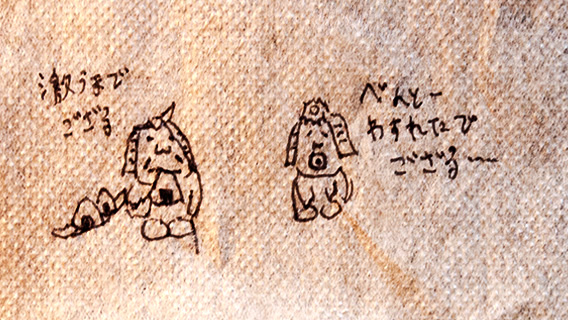 激うまで
ござる
べんとー
わすれたで
ござる〜